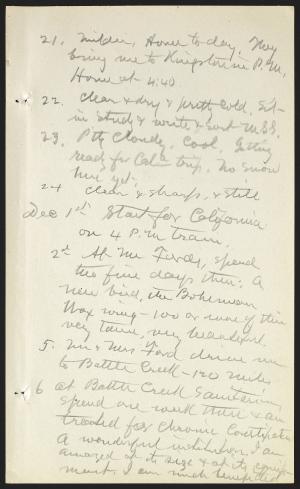 21. Milder, Home to day. They
bring me to Kingston in P.M.
Home at 4:40
22. Clear & dry & pretty cold. Sit
in Study & write & sort MSS.
23. Ptly Cloudy, Cool. Getting
ready for Cal trip. No snow
here yet.
24 Clear & sharp, & still
Dec 1st Start for California
on 4 P.M train.
2d At Mr Fords, spend
two fine days there. A
new bird, the Bohemian
Wax wing - 100 or more of them
very tame, very beautiful.
5. Mr & Mrs Ford drive me
to Battle Creek - 120 miles
6 at Battle Creek Sanitarium
spend one week there & am
treated for Chronic Constipation
A wonderful institution, I am
amazed at its size & at its equip-
ment. I am much benefitted